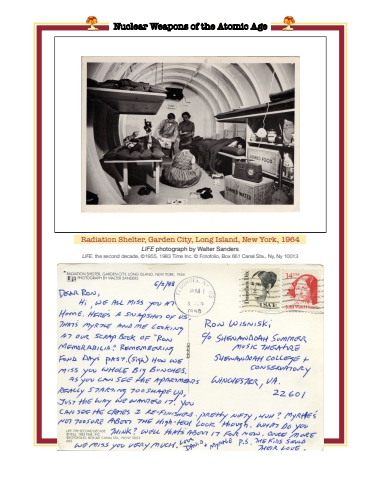 Nuclear Weapons of the Atomic Age
CANNED FOOD
CANNED WATER
Radiation Shelter, Garden City, Long Island, New York, 1964
LIFE photograph by Walter Sanders
LIFE: the second decade, ©1955, 1983 Time Inc. © Fotofolio, Box 661 Canal Sta., Ny, Ny 10013
RADIATION SHELTER, GARDEN CITY, LONG ISLAND, NEW YORK, 1964
PHOTOGRAPH BY WALTER SANDERS
6/2/88
DEAR RON,
HI, WE ALL MISS YOU AT
HOME. HERE'S A SNAPSHOT OF US.
THATS MYRTLE AND ME LOOKING
AT OUR SCRAP BOOK OF "RON
MEMORABILIA" REMEMBERING
FOND DAYS PAST. (SIGH) HOW WE
MISS YOU WHOLE BIG BUNCHES.
AS YOU CAN SEE THE APARTMENTS
REALLY STARTING TO SHAPE UP,
JUST THE WAY WE WANTED IT. YOU
CAN SEE THE CRATES I RE-FINISHED. PRETTY NIFTY, HUH? MYRTLE'S
NOT TOO SURE ABOUT THE HIGH-TECH LOOK THOUGH. WHAT DO YOU
THINK? WELL THATS ABOUT IT FOR NOW. ONCE MORE
WE MISS YOU VERY MUCH. LOVE DAVID + MYRTLE P.S. THE KIDS SEND
THEIR LOVE.
14
USA
RON WISNISKI
C/O SHENANDOAH SUMMER
MUSIC THEATRE
SHENANDOAH COLLEGE +
CONSERVATORY
WINCHESTER, VA.
22601